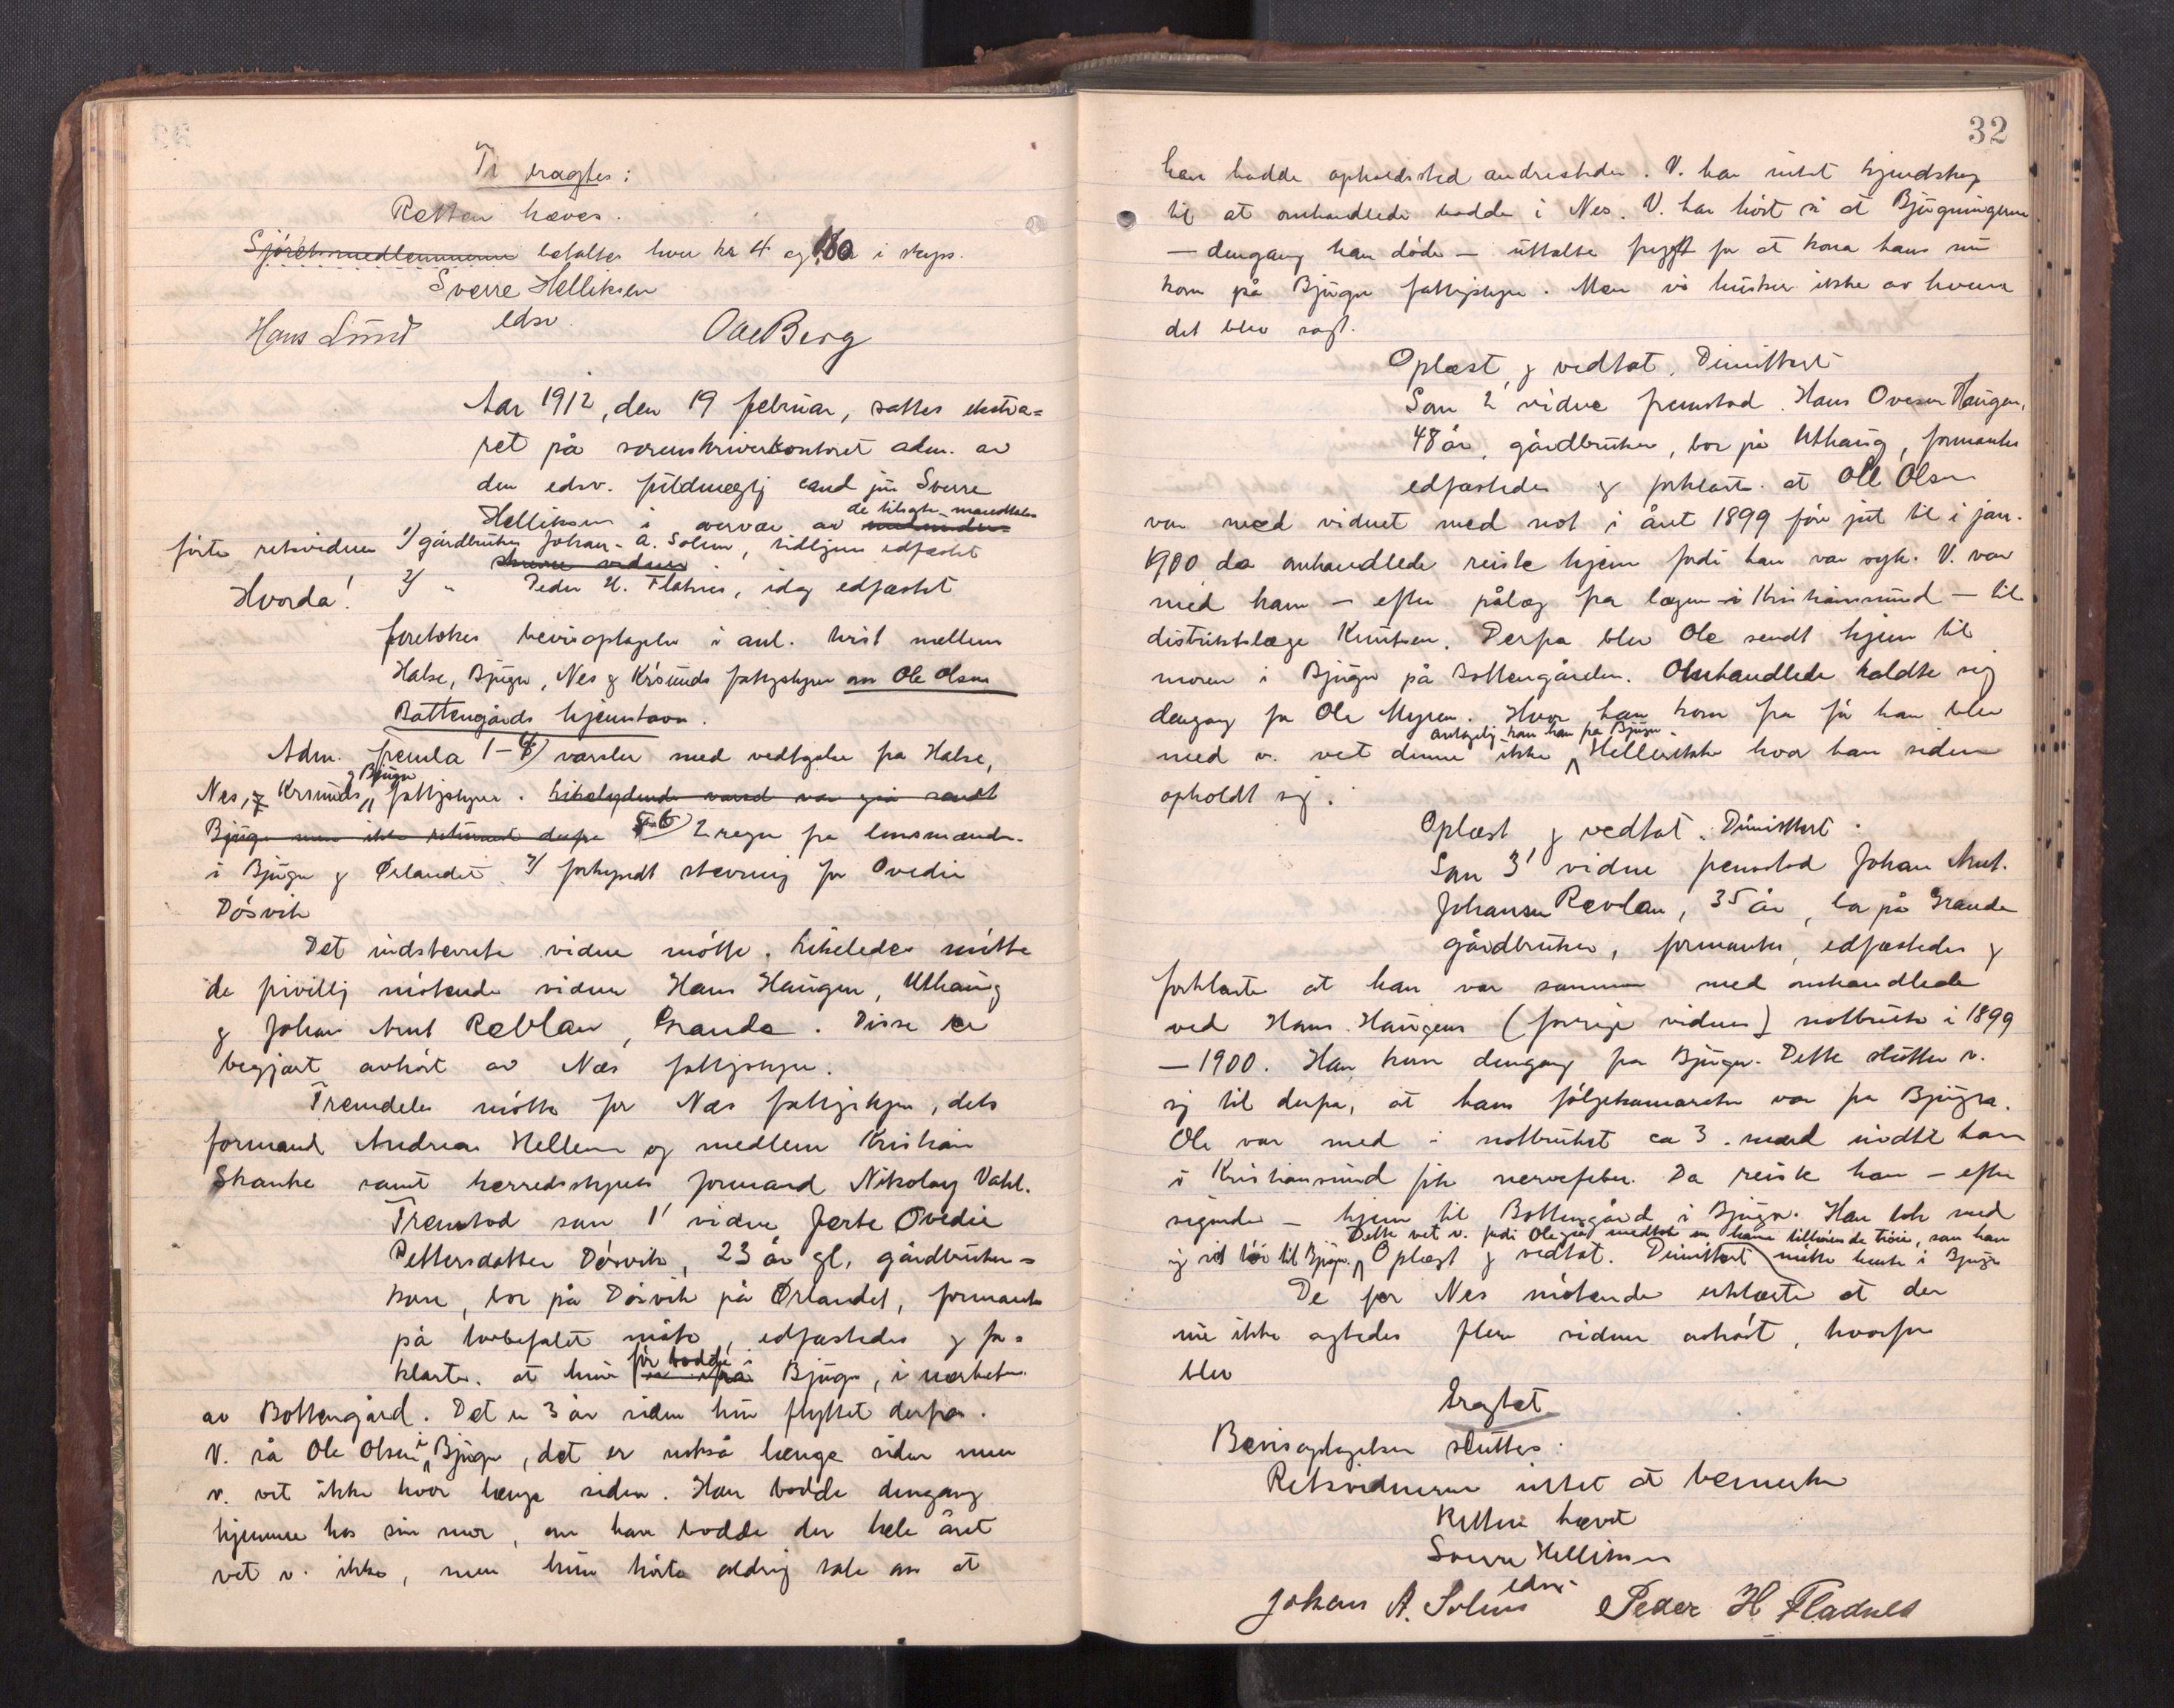 Ti eragtes:
Retten hæves.
Sjöretsmedlemmerne betaltes hver kr 4 og i skyds.
Sverre Helliksen
edsv.
Hans Lund Ole Berg
Aar 1912, den 19 februar, sattes ekstra=
ret på sorenskriverkontoret adm. av
den edsv. fuldmægtig cand jur Sverre
Helliksen i overvær av de tilsatte mandtals
førte retsvidner 1) gårdbruker Johan A. Solem, tidligere edfæstet
2) " Peder H. Flatnes, idag edfæstet
Hvorda!
foretokes bevisoptagelse i anl. tvist mellem
Halse, Bjugn, Nes & Krsunds fattigstyrer om Ole Olsen
Bottengårds hjemstavn.
Adm. fremla 1-4) varsler med vedtagelse fra Halse,
Nes, Krsunds & Bjugn fattigstyrer. Likelydende varsel var også sendt
Bjugn men ikke returnert derfra 5-6) 2 regn. fra lensmændene
i Bjugn & Ørlandet 7) forkyndt stevning for Ovedie
Døsvik
Det indstevnte vidne møtte. Likeledes møtte
de frivillig møtende vidner Hans Haugen, Uthaug
& Johan Arnt Revlan, Grande. Disse er
begjært avhørt av Næs fattigstyre.
Fremdeles møtte for Næs fattigstyre, dets
formand Andreas Hellem og medlem Kristian
Skanke samt herredsstyrets formand Nikolay Vahl.
Fremstod som 1' vidne Jerte Ovedie
Pettersdatter Døsvik, 23 år gl, gårdbruker=
kone, bor på Døsvik på Ørlandet, formantes
på lovbefalet måte, edfæstedes & for=
klarte. at hun før bodde i Bjugn, i nærheten
av Bottengård. Det er 3 år siden hun flyttet derfra.
V. så Ole Olsen i Bjugn, det er også længe siden men
v. vet ikke hvor længe siden. Han bodde dengang
hjemme hos sin mor, om han bodde der hele året
vet v. ikke, men hun hørte aldrig tale om at
32
han hadde opholdssted andresteder. V. har intet kjendskap
til at omhandlede bodde i Nes. V. har hørt si at Bjugningerne
— dengang han døde — uttalte frygt for at kona hans nu
kom på Bjugn fattigstyre. Men vi husker ikke av hvem
det blev sagt.
Oplæst & vedtat. Dimittert
Som 2' vidne fremstod Hans Ovesen Haugen,
48 år, gårdbruker, bor på Uthaug, formantes
edfæstedes & forklarte at Ole Olsen
var med vidnet med not i året 1899 før jul til i jan.
1900 da omhandlede reiste hjem fordi han var syk. V. var
med ham — efter pålæg fra lægen i Kristiansund — til
distriktslæge Knutsen. Derfra blev Ole sendt hjem til
moren i Bjugn på Bottengården. Omhandlede kaldte sig
dengang for Ole Myren. Hvor han kom fra før han blev
med v. vet denne ikke antagelig kom han fra Bjugn. Heller ikke hvor han siden
opholdt sig.
Oplæst & vedtat. Dimittert.
Som 3' vidne fremstod Johan Arnt
Johansen Revlan, 35 år, bor på Grande
gårdbruker, formantes, edfæstedes &
forklarte at han var sammen med omhandlede
ved Hans Haugens (forrige vidnes) notbruk i 1899
— 1900. Han kom dengang fra Bjugn. Dette slutter v.
sig til derfra, at hans følgekamerater var fra Bjugn.
Ole var med i notbruket ca 3. mnd indtil han
i Kristiansund fik nervefeber. Da reiste han — efter
sigende — hjem til Bottengård i Bjugn. Han tok med
sig sit tøi til Bjugn. Dette vet v. fordi Ole også medtok en ham tilhørende trøie, som han
måtte hente i Bjugn Oplæst & vedtat. Dimittert
De for Nes møtende erklærte at der
nu ikke agtedes flere vidner avhørt, hvorfor
blev
Eragtet
Bevisoptagelsen sluttes.
Retsvidnerne intet at bemerke
Retten hævet
Sverre Helliksen
edsv.
Johan A. Solem Peder H Fladnes